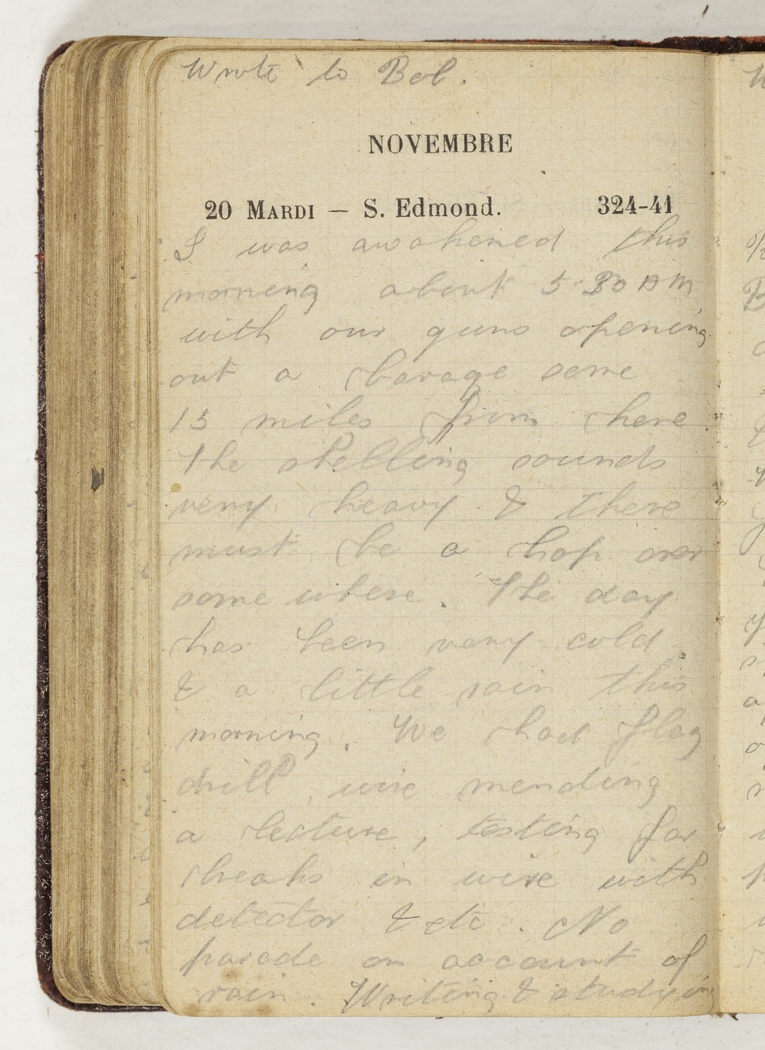 Wrote to Bob.
NOVEMBRE
20 MARDI — S. Edmond. 324-41
I was awakened this
morning about 5.30 AM
with our guns opening
out a barage some
15 miles from here
The shelling sounds
very heavy & there
must be a hop over
some where. The day
has been very cold
& a little rain this
morning. We had flag
drill, wire mending
a lecture, testing for
breaks in wire with
detector & etc. No
parade on account of
rain. Writing & studying